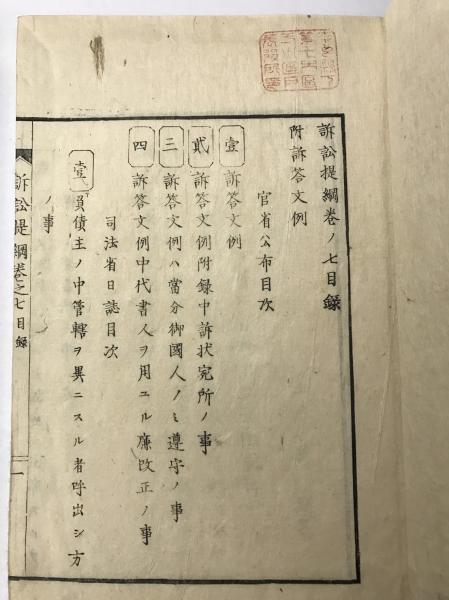 訴訟提綱巻ノ七目録
附訴答文例
官省公布目次
壹 訴答文例
貳 訴答文例附録中訴状宛所ノ事
三 訴答文例ハ當分御國人ノミ遵守ノ事
四 訴答文例中代書人ヲ用ユル廉改正ノ事
司法省日誌目次
壹 負債主ノ中管轄ヲ異ニスル者呼出シ方
ノ事
訴訟提綱巻之七目録
一